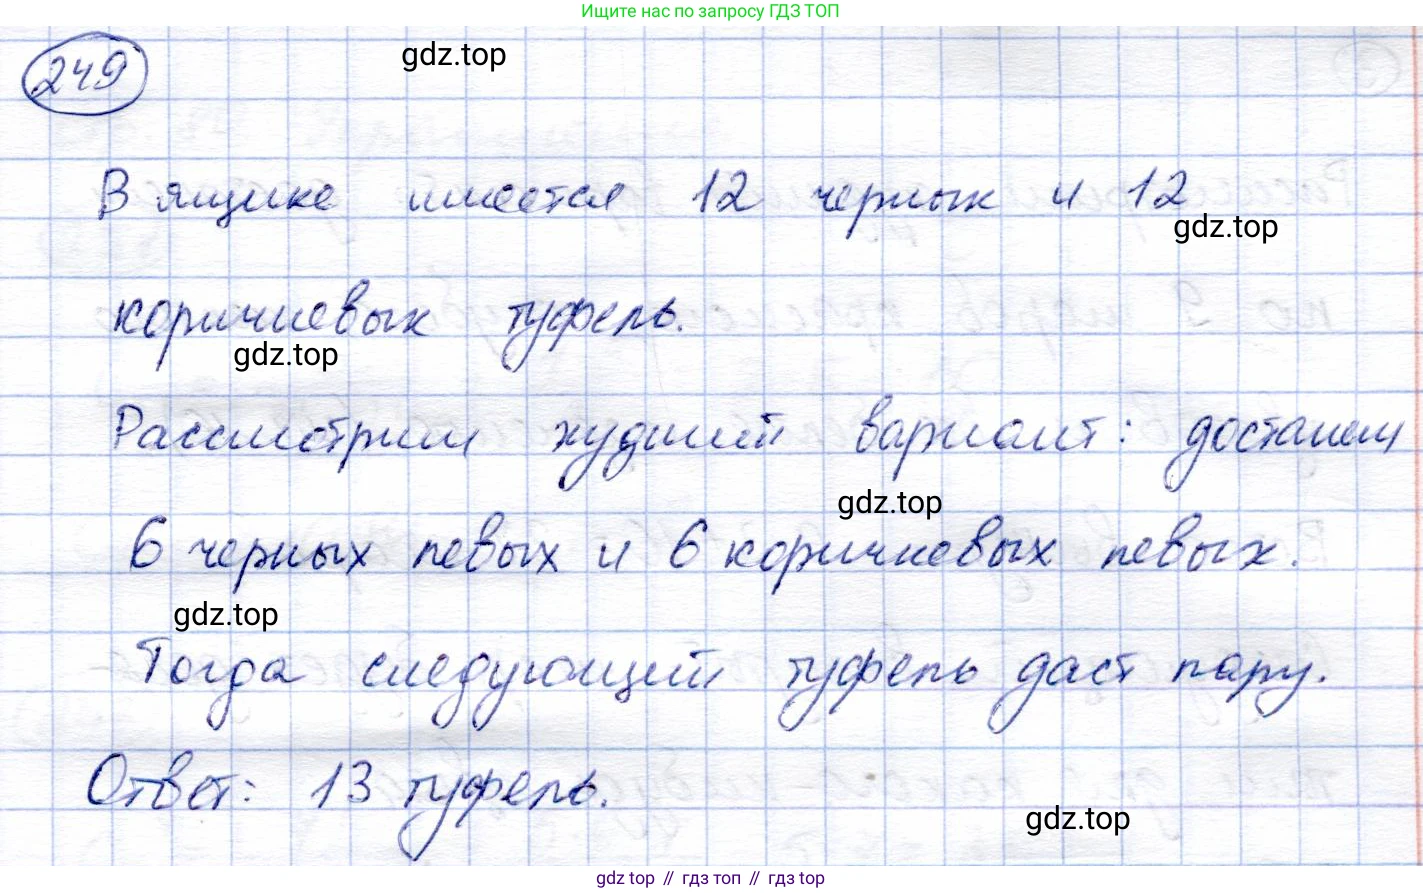 Ищите нас по запросу ГДЗ ТОП
249
gdz.top
В ящике имеется 12 черных и 12
gdz.top
коричневых туфель.
gdz.top
Рассмотрим худший вариант: достанем
gdz.top
6 черных левых и 6 коричневых левых.
gdz.top
Тогда следующий туфель даст пару.
Ответ: 13 туфель.
gdz.top
gdz top // гдз топ // gdz top